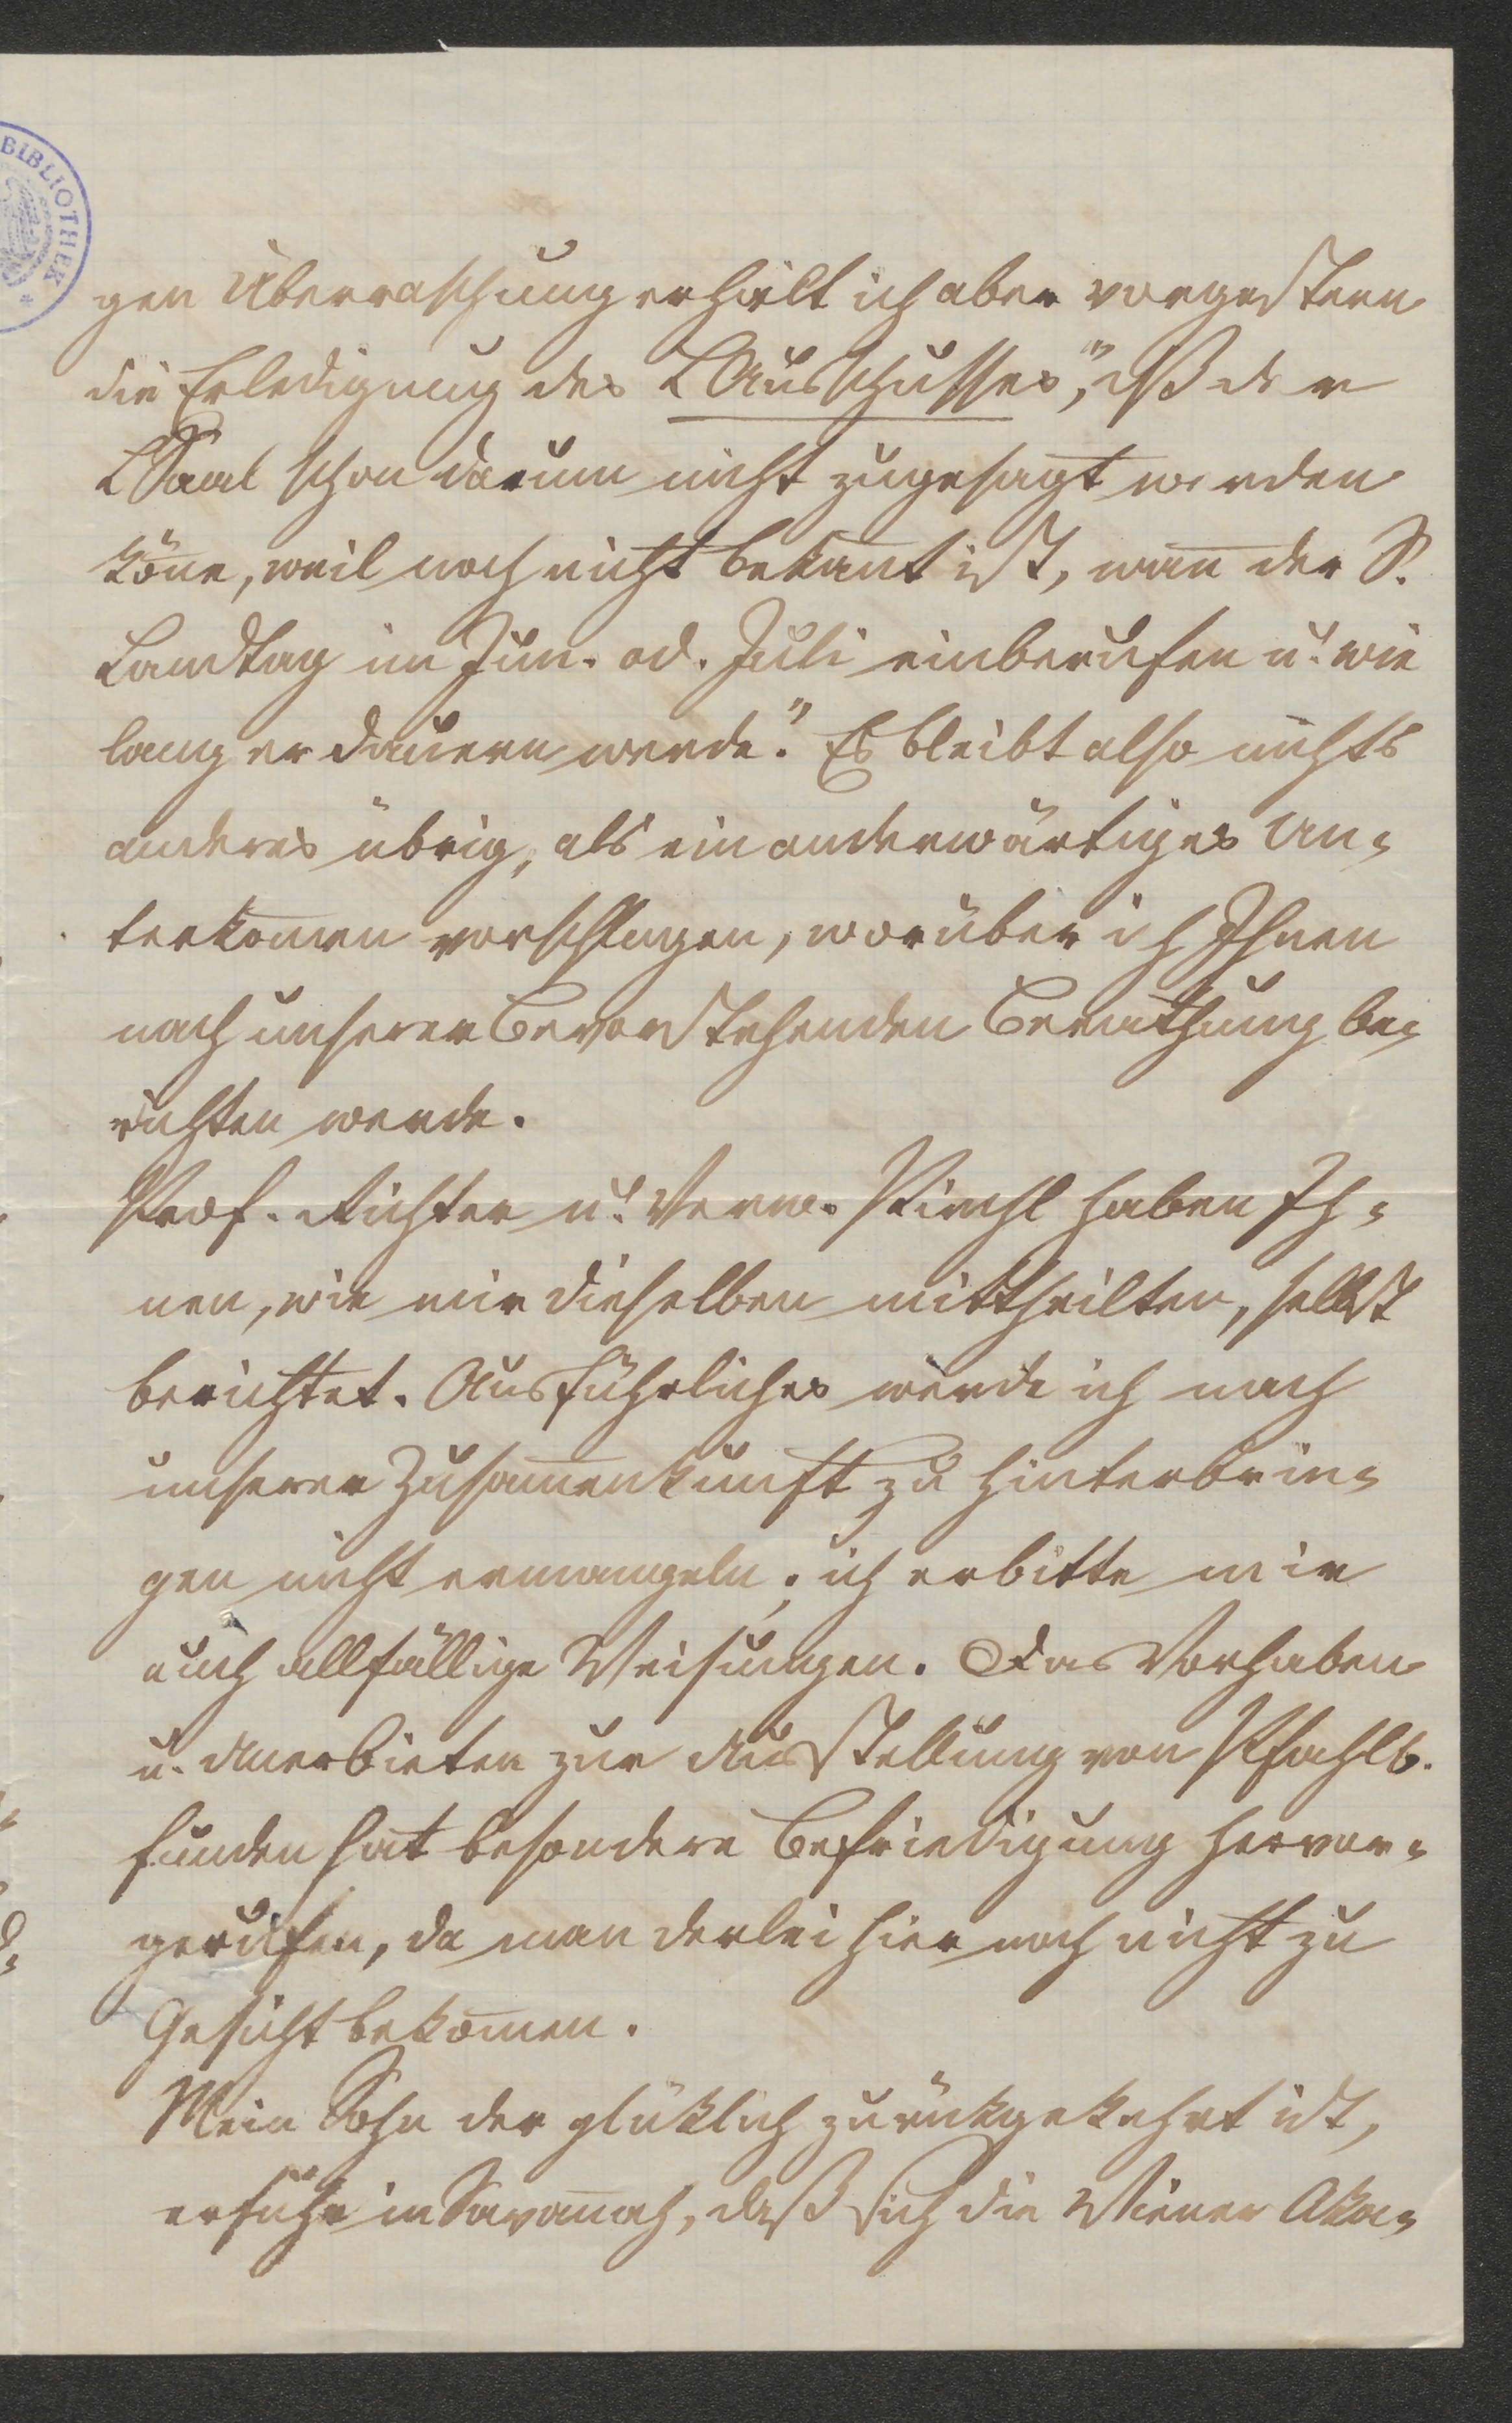 BIBLIOTHEK
gen Überraschung erhielt ich aber vorgestern
die Erledigung des LAusschusses, "dß der
LSaal schon darum nicht zugesagt werden
kön̄e, weil noch nicht bekan̄t ist, wan̄ der S.
Landtag im Jun. od. Juli einberufen u. wie
lang er dauern werde." Es bleibt also nichts
anderes übrig, als ein anderwärtiges Un-
terkom̄en vorschlagen, worüber ich Ihnen
nach unserer bevorstehenden Berathung be-
richten werde.
Prof. Richter u. Verw. Pirchl haben Ih-
nen, wie mir dieselben mittheilten, selbst
berichtet. Ausführliches werde ich nach
unserer Zusam̄enkunft zu hinterbrin-
gen nicht ermangeln; ich erbitte mir
auch allfällige Weisungen. Das Vorhaben
u. Anerbieten zur Ausstellung von Pfahlb.
funden hat besondere Befriedigung hervor-
gerufen, da man derlei hier noch nicht zu
Gesicht bekom̄en.
Mein Sohn der glüklich zurükgekehrt ist,
erfuhr in Savan̄ah, daß sich die Wiener Aka-